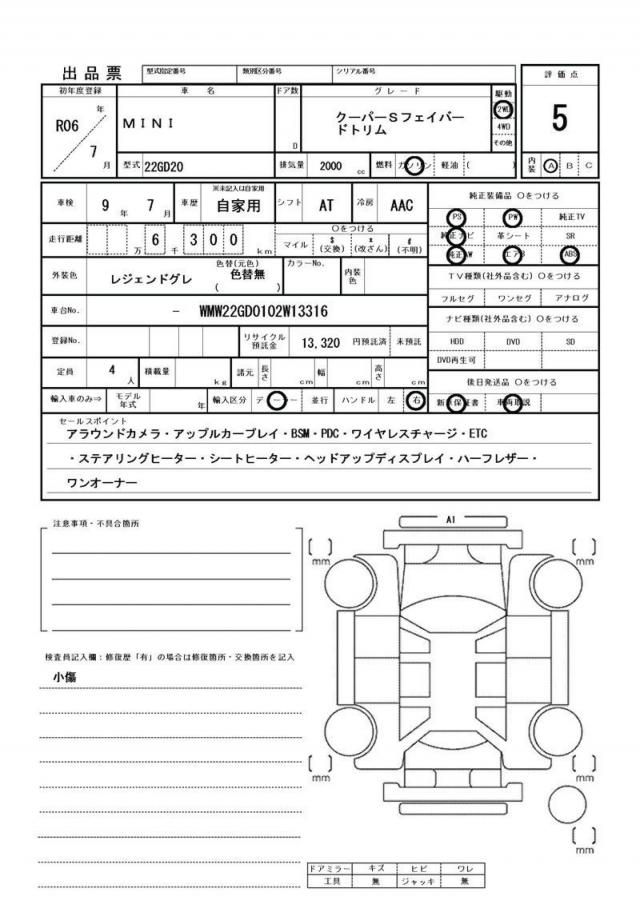 出品票 型式指定番号 類別区分番号 シリアル番号
初年度登録 車名 ドア数 グレード 駆動 評価点
R06 年 7 月
MINI
D
クーパーSフェイバー
ドトリム
2WD
4WD
その他
5
型式 22GD20 排気量 2000 cc 燃料 ガソリン 軽油 ( ) 内装 A B C
車検 9 年 7 月 車歴 ※未記入は自家用 自家用 シフト AT 冷房 AAC
純正装備品 〇をつける
PS PW 純正TV
純正ナビ 革シート SR
純正AW エアB ABS
走行距離 万 6 千 3 0 0 km 〇をつける
マイル $ (交換) x (改ざん) # (不明)
外装色 レジェンドグレ 色替(元色) 色替無 ( ) カラーNo. 内装色
TV種類(社外品含む) 〇をつける
フルセグ ワンセグ アナログ
車台No. － WMW22GD0102W13316
ナビ種類(社外品含む) 〇をつける
HDD DVD SD
DVD再生可
登録No. リサイクル預託金 13,320 円預託済 未預託
定員 4 人 積載量 kg 諸元 長さ cm 幅 cm 高さ cm
後日発送品 〇をつける
新車保証書 車両取説
輸入車のみ⇒ モデル年式 年 輸入区分 ディーラー 並行 ハンドル 左 右
セールスポイント
アラウンドカメラ・アップルカープレイ・BSM・PDC・ワイヤレスチャージ・ETC
・ステアリングヒーター・シートヒーター・ヘッドアップディスプレイ・ハーフレザー・
ワンオーナー
注意事項・不具合箇所
A1
mm
mm
検査員記入欄：修復歴「有」の場合は修復箇所・交換箇所を記入
小傷
mm
mm
mm
ドアミラー キズ ヒビ ワレ
工具 無 ジャッキ 無